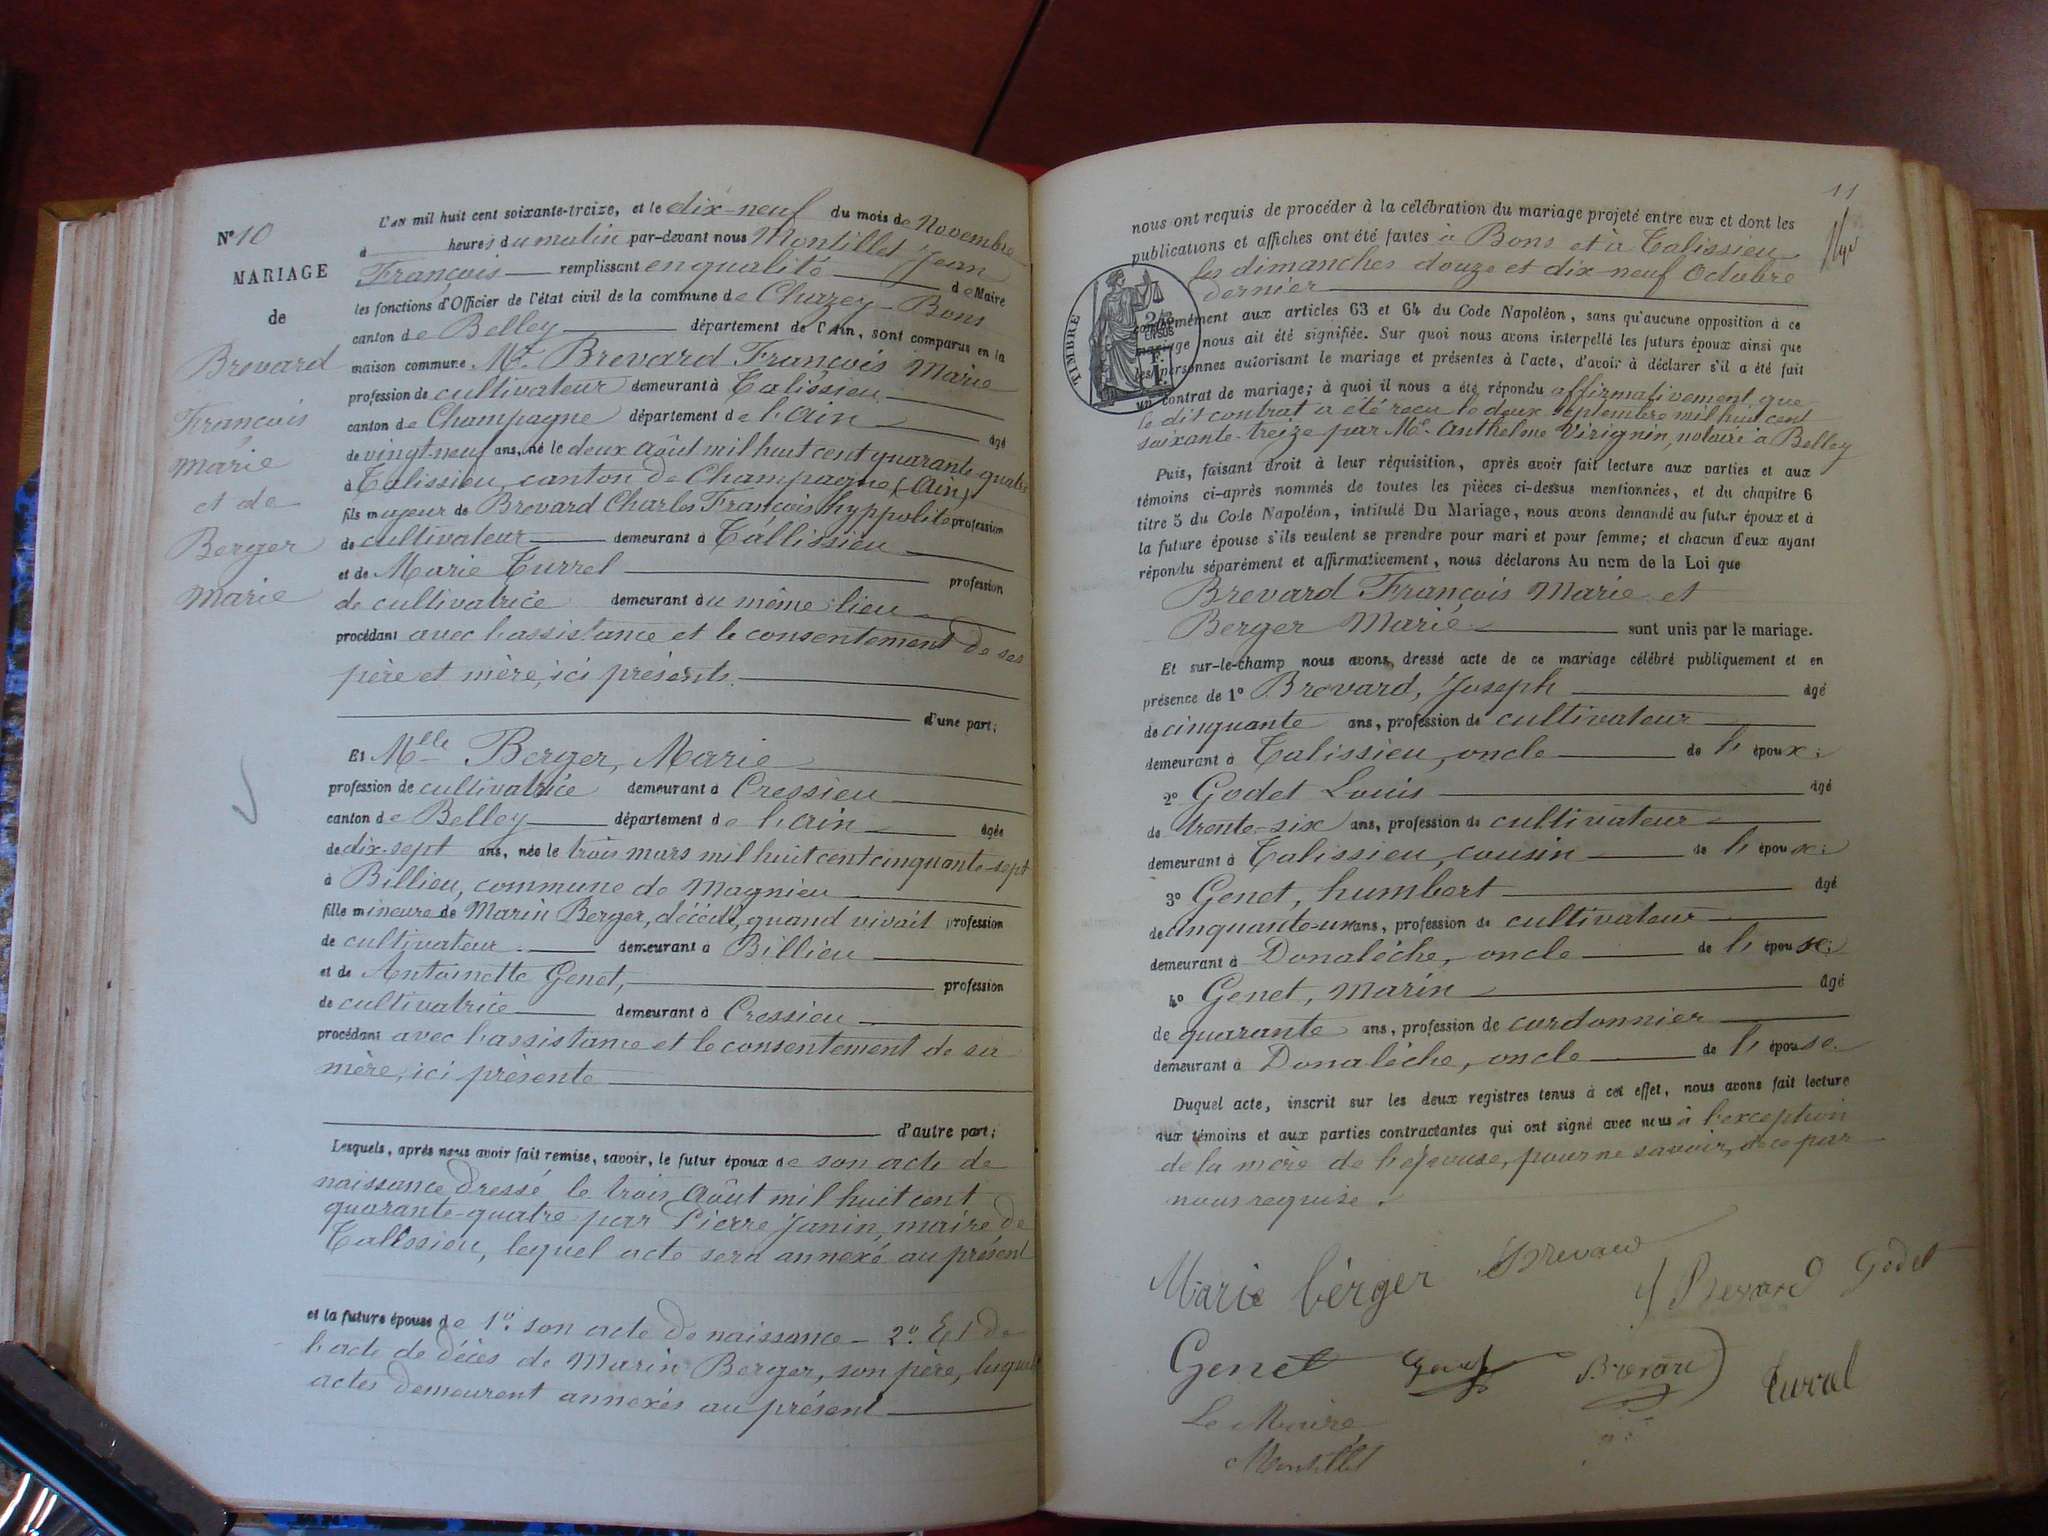 N° 10
MARIAGE
de
Brevard
François
Marie
et de
Berger
Marie
L'an mil huit cent soixante-treize, et le dix-neuf du mois de Novembre
à heures du matin par-devant nous Montillet Jean
François remplissant en qualité de Maire
les fonctions d'Officier de l'état civil de la commune de Chazey-Bons
canton de Belley département de l'Ain, sont comparus en la
maison commune Mr Brevard François Marie
profession de cultivateur demeurant à Talissieu
canton de Champagne département de l'ain âgé
de vingt-neuf ans, né le deux Août mil huit cent quarante quatre
à Talissieu, canton de Champagne (Ain)
fils majeur de Brevard Charles François hyppolite profession
de cultivateur demeurant à Tallissieu
et de Marie Turrel profession
de cultivatrice demeurant au même lieu
procédant avec l'assistance et le consentement de ses
père et mère, ici présents.
d'une part;
Et Melle Berger, Marie
profession de cultivatrice demeurant à Cressieu
canton de Belley département de l'ain âgée
de dix-sept ans, née le trois mars mil huit cent cinquante-sept
à Billieu, commune de Magnieu
fille mineure de Marin Berger, décédé, quand vivait profession
de cultivateur demeurant à Billieu
et de Antoinette Genet, profession
de cultivatrice demeurant à Cressieu
procédant avec l'assistance et le consentement de sa
mère, ici présente
d'autre part;
Lesquels, après nous avoir fait remise, savoir, le futur époux de son acte de
naissance dressé le trois Août mil huit cent
quarante-quatre par Pierre Janin, maire de
Talissieu, lequel acte sera annexé au présent
et la future épouse de 1° son acte de naissance - 2° Et de
l'acte de décès de Marin Berger, son père, lesquels
actes demeurent annexés au présent
11
nous ont requis de procéder à la célébration du mariage projeté entre eux et dont les
publications et affiches ont été faites à Bons et à Talissieu
les dimanches douze et dix-neuf Octobre
dernier
TIMBRE
conformément aux articles 63 et 64 du Code Napoléon, sans qu'aucune opposition à ce
mariage nous ait été signifiée. Sur quoi nous avons interpellé les futurs époux ainsi que
les personnes autorisant le mariage et présentes à l'acte, d'avoir à déclarer s'il a été fait
un contrat de mariage; à quoi il nous a été répondu affirmativement que
le dit contrat a été reçu le deux septembre mil huit cent
soixante-treize par Me Anthelme Virignin, notaire à Belley
Puis, faisant droit à leur réquisition, après avoir fait lecture aux parties et aux
témoins ci-après nommés de toutes les pièces ci-dessus mentionnées, et du chapitre 6
titre 5 du Code Napoléon, intitulé Du Mariage, nous avons demandé au futur époux et à
la future épouse s'ils veulent se prendre pour mari et pour femme; et chacun d'eux ayant
répondu séparément et affirmativement, nous déclarons Au nom de la Loi que
Brevard François Marie et
Berger Marie sont unis par le mariage.
Et sur-le-champ nous avons dressé acte de ce mariage célébré publiquement et en
présence de 1° Brevard, Joseph âgé
de cinquante ans, profession de cultivateur
demeurant à Talissieu, oncle de l' époux;
2° Godet Louis âgé
de trente-six ans, profession de cultivateur
demeurant à Talissieu, cousin de l' époux;
3° Genet, humbert âgé
de cinquante-un ans, profession de cultivateur
demeurant à Donalèche, oncle de l' épouse;
4° Genet, Marin âgé
de quarante ans, profession de cordonnier
demeurant à Donalèche, oncle de l' épouse.
Duquel acte, inscrit sur les deux registres tenus à cet effet, nous avons fait lecture
aux témoins et aux parties contractantes qui ont signé avec nous à l'exception
de la mère de l'épouse, pour ne savoir, de ce par
nous requise.
Marie bérger Brevard
J Brevard Godet
Genet Genet Brevard Turrel
Le Maire
Montillet